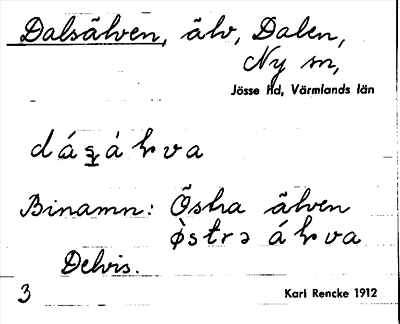 Dalsälven, älv, Dalen,
Ny sn,
Jösse hd, Värmlands län
Binamn: Östra älven
Delvis.
3
Karl Rencke 1912